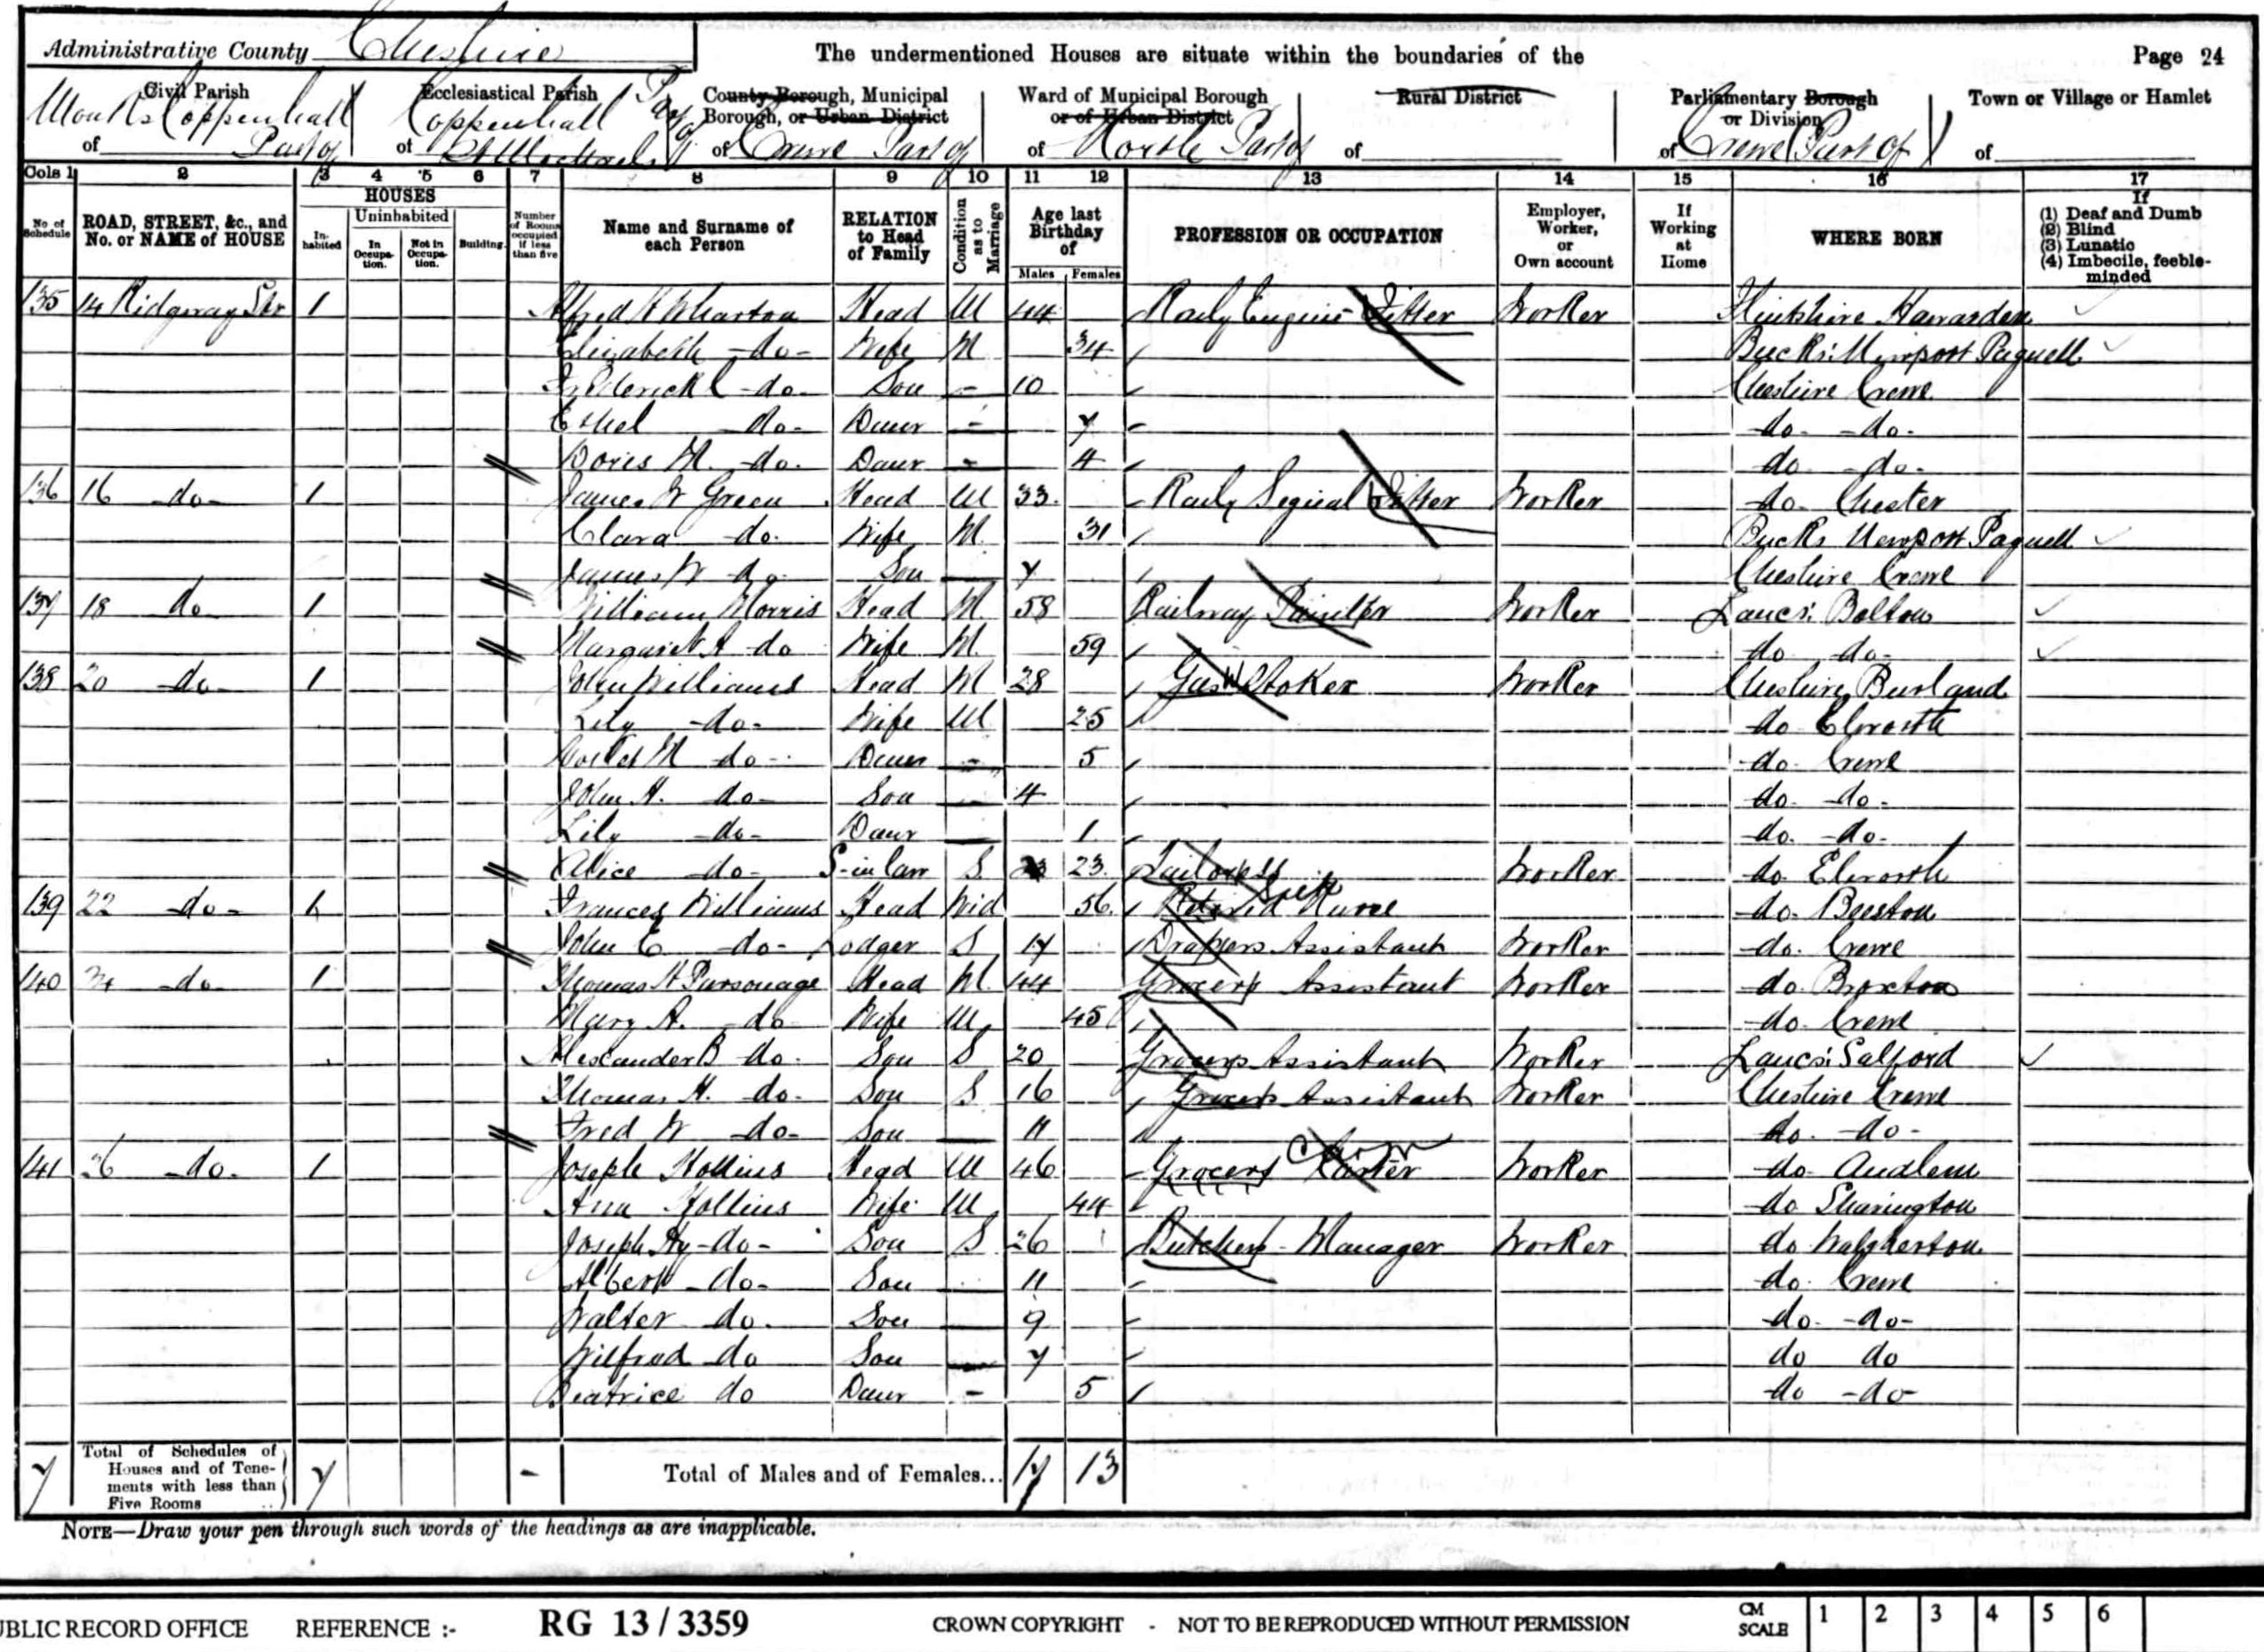 Administrative County Cheshire
The undermentioned Houses are situate within the boundaries of the
Page 24
Civil Parish
of Monks Coppenhall Part of
Ecclesiastical Parish
of Coppenhall St Michael Part of
County Borough, Municipal Borough, or Urban District
of Crewe Part of
Ward of Municipal Borough or of Urban District
of North Part of
Rural District
of
Parliamentary Borough or Division
of Crewe (Part of)
Town or Village or Hamlet
of
Cols 1 2 3 4 5 6 7 8 9 10 11 12 13 14 15 16 17
No of Schedule
ROAD, STREET, &c., and No. or NAME of HOUSE
HOUSES
Inhabited
Uninhabited
In Occupation.
Not in Occupation.
Building.
Number of Rooms occupied if less than five
Name and Surname of each Person
RELATION to Head of Family
Condition as to Marriage
Age last Birthday of
Males Females
PROFESSION OR OCCUPATION
Employer, Worker, or Own account
If Working at Home
WHERE BORN
If
(1) Deaf and Dumb
(2) Blind
(3) Lunatic
(4) Imbecile, feeble-minded
135 14 Ridgway Str 1 Alfred H Wharton Head M 44 Raily Engine Fitter Worker Flintshire Hawarden
Elizabeth -do- Wife M 34 Bucks: Newport Pagnell
Frederick C -do- Son - 10 Cheshire Crewe
Ethel do- Daur - 7 do- -do-
Doris M. do. Daur - 4 do -do-
136 16 -do- 1 James W Green Head M 33 Raily Segnal Fitter Worker do- Chester
Clara do. Wife M 31 Bucks Newport Pagnell
James W do Son - 7 Cheshire Crewe
137 18 do 1 William Morris Head M 58 Railway Painter Worker Lancs: Bolton
Margaret A do Wife M 59 do do-
138 20 do- 1 John Williams Head M 28 Gas W Stoker Worker Cheshire Burland
Lily -do- Wife M 25 do Elworth
M do- Daur - 5 do- Crewe
John H. do- Son - 4 do- -do-
Lily -do- Daur - 1 do- -do-
Alice do- S-in law S 23 Tailoress Worker do Elworth
139 22 do- 1 Frances Williams Head Wid 56 Retired Nurse do- Beeston
John E -do- Lodger S 17 Drapers Assistant Worker do. Crewe
140 24 do 1 Thomas H Parsonage Head M 44 Grocers Assistant Worker do Broxton
Mary A. -do Wife M 45 do- Crewe
Alexander B do- Son S 20 Grocers Assistant Worker Lancs: Salford
Thomas H. do- Son S 16 Grocers Assistant Worker Cheshire Crewe
Fred W -do- Son - 11 do- -do-
141 26 -do- 1 Joseph Hollins Head M 46 Grocers Carter Worker do- Audlem
Ann Hollins Wife M 44 do Shavington
Joseph Hy -do- Son S 26 Butchers - Manager Worker do Walgherton
Albert do- Son 11 do. Crewe
Walter do. Son - 9 do- -do-
Wilfred do Son - 7 do do
Beatrice do Daur - 5 do -do-
7 Total of Schedules of Houses and of Tenements with less than Five Rooms 7 - Total of Males and of Females... 17 13
NOTE—Draw your pen through such words of the headings as are inapplicable.
UBLIC RECORD OFFICE REFERENCE :- RG 13 / 3359 CROWN COPYRIGHT - NOT TO BE REPRODUCED WITHOUT PERMISSION CM SCALE 1 2 3 4 5 6